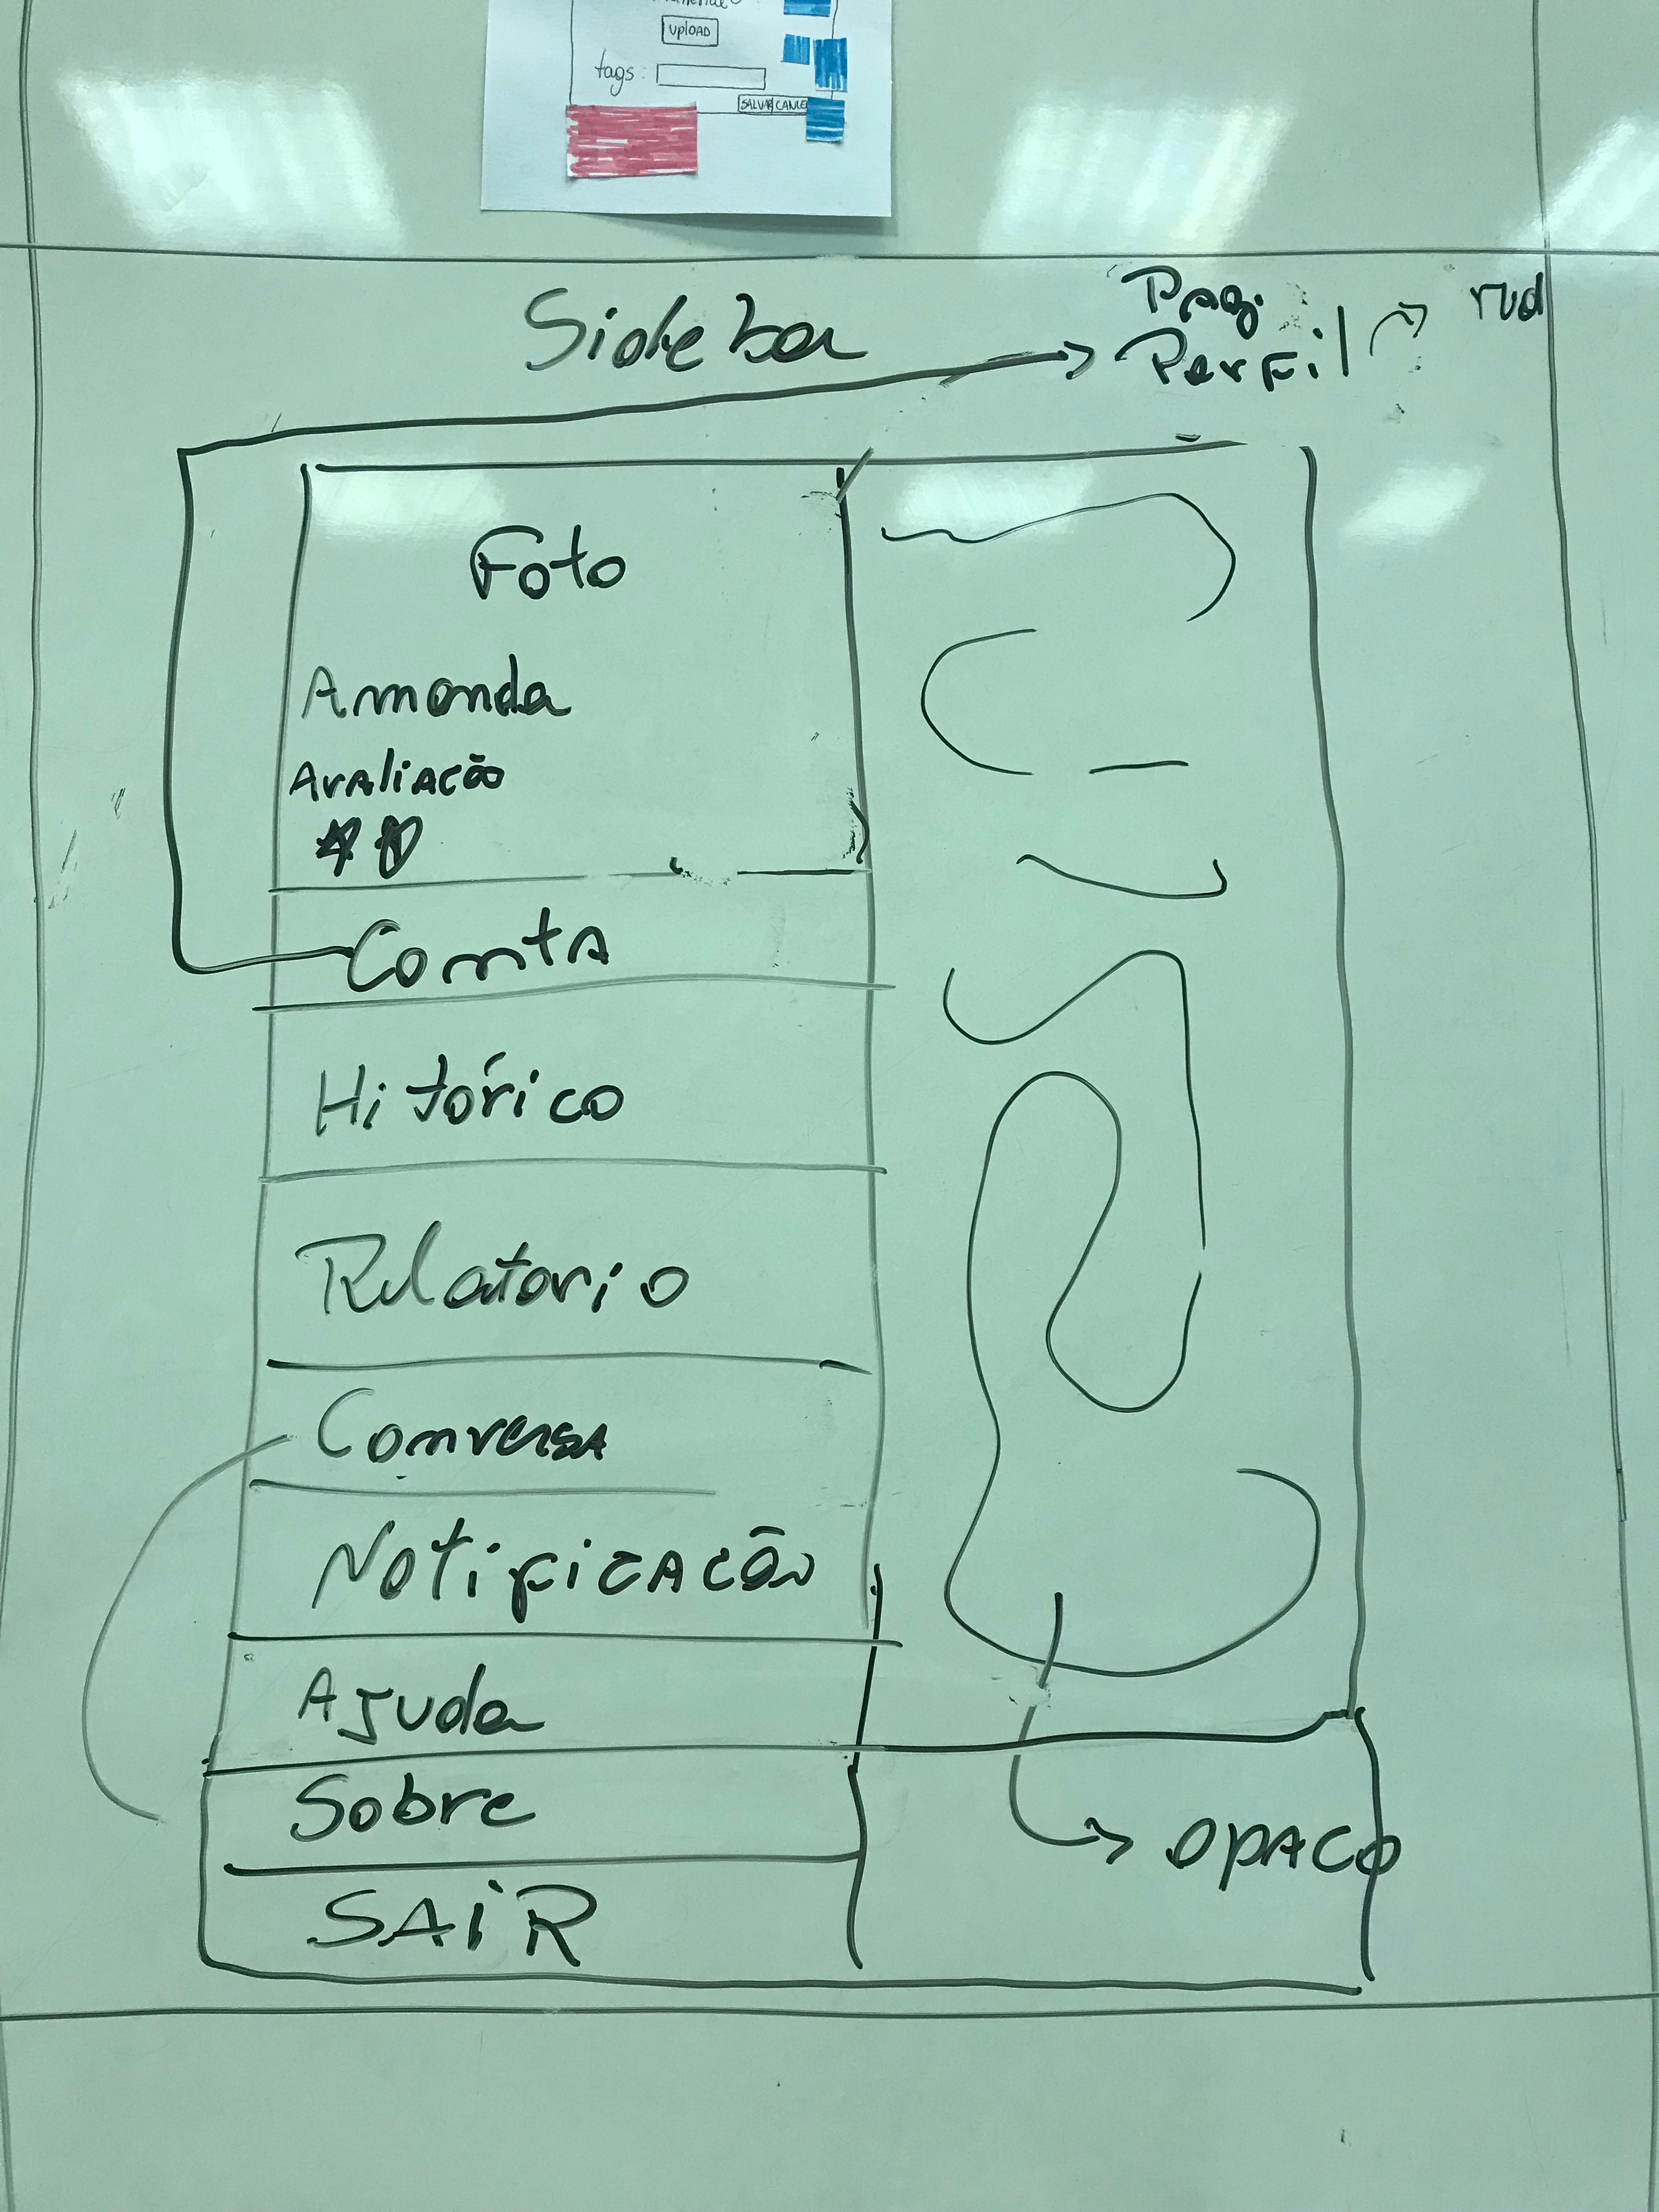 UPLOAD
tags:
SALVAR CANCE
Sidebar
Pag.
Perfil
Foto
Amanda
Avaliação
Conta
Hitórico
Relatorio
Conversa
Notificação
Ajuda
Sobre
SAIR
OPACO